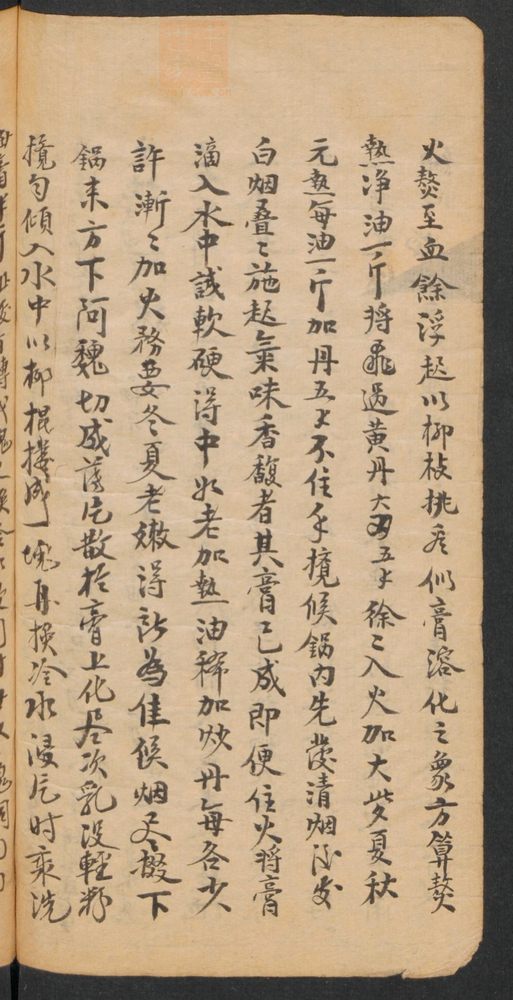 火熬至血餘浮起以柳枝挑看似膏溶化之象方算熬
熟浄油一斤将飛過黄丹六两五才徐〻入火加大些夏秋
元熱每油一斤加丹五才不住手攪候鍋内先發清烟後发
白烟叠〻施起氣味香馥者其膏已成即便住火將膏
滴入水中試軟硬得中如老加熱油稀加炒丹每各少
許漸〻加火務要冬夏老嫩得所為佳候烟尽掇下
鍋来方下阿魏切成薄片散於膏上化尽次乳没輕粉
攪匀傾入水中以柳棍摟成一塊再換冷水浸片时乘洗